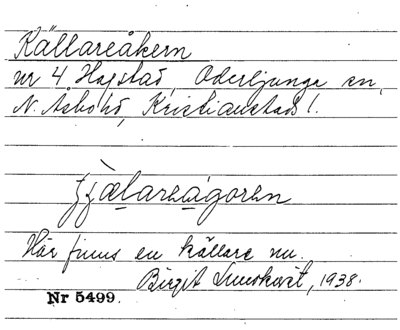 Källareåkern
nr 4 Hagstad, Oderljunga sn,
N. Åsbo hd, Kristianstads l.
Här finns en källare nu.
Birgit 1938.
Nr 5499.